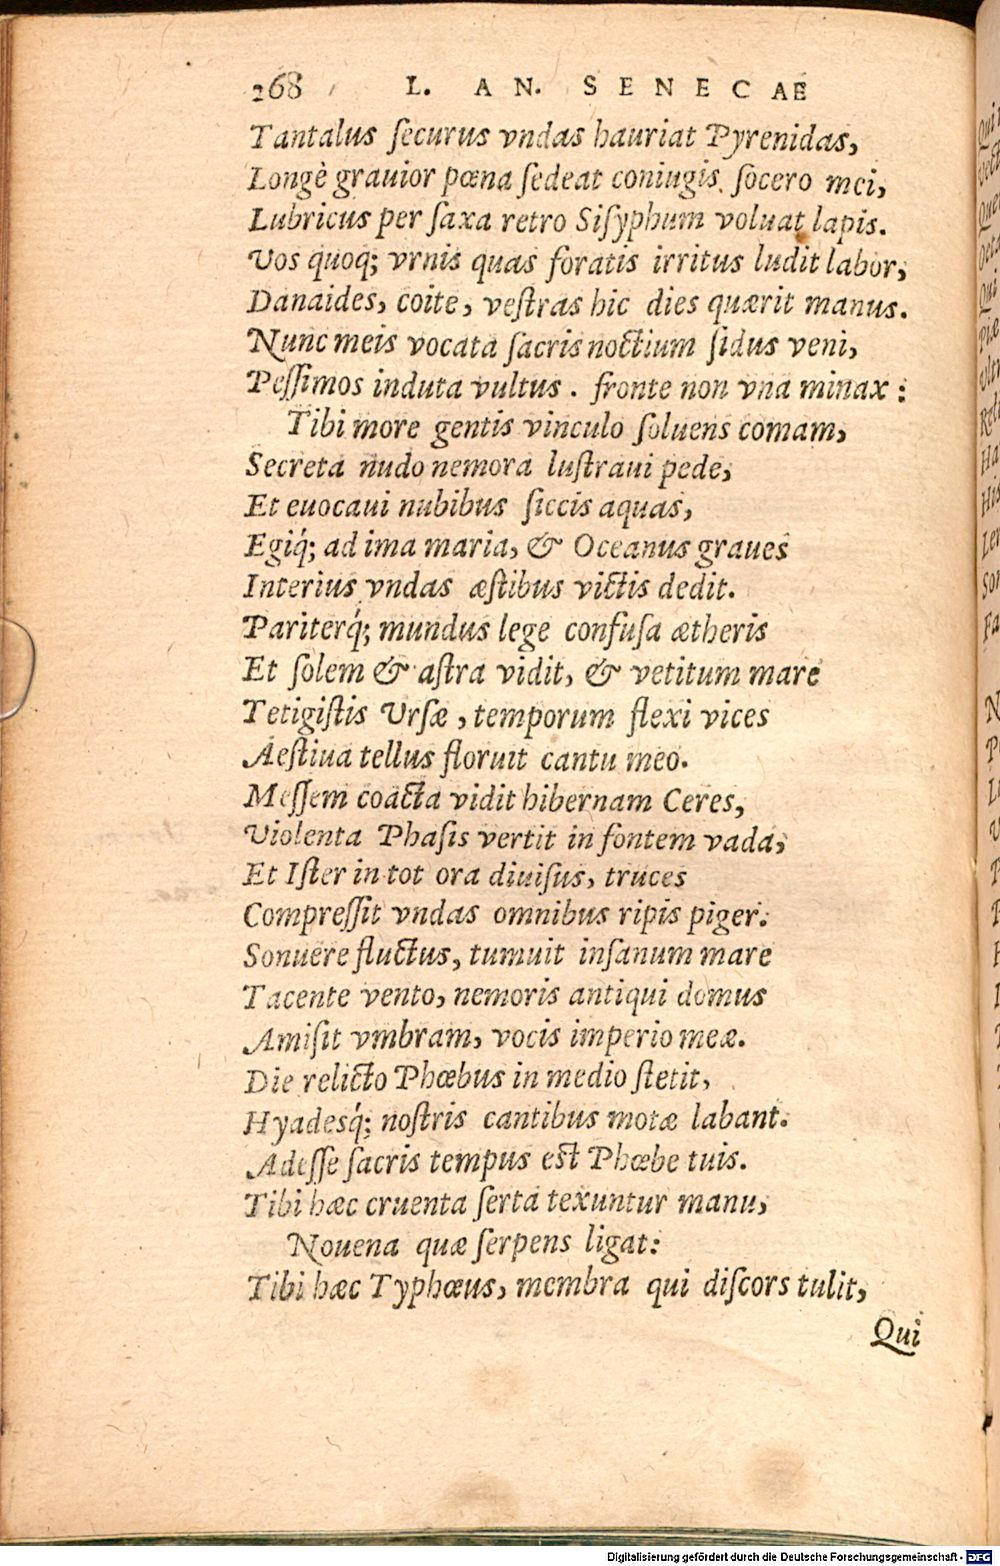 268 L. AN. SENECAE
Tantalus ſecurus vndas hauriat Pyrenidas,
Longè grauior pœna ſedeat coniugis ſocero mei,
Lubricus per ſaxa retro Siſyphum voluat lapis.
Vos quoq; vrnis quas foratis irritus ludit labor,
Danaides, coite, veſtras hic dies quærit manus.
Nunc meis vocata ſacris noctium ſidus veni,
Peſſimos induta vultus. fronte non vna minax:
Tibi more gentis vinculo ſoluens comam,
Secreta nudo nemora luſtraui pede,
Et euocaui nubibus ſiccis aquas,
Egiq́; ad ima maria, & Oceanus graues
Interius vndas æſtibus victis dedit.
Pariterq́; mundus lege confuſa ætheris
Et ſolem & aſtra vidit, & vetitum mare
Tetigiſtis Vrſæ, temporum flexi vices
Aeſtiua tellus floruit cantu meo.
Meſſem coacta vidit hibernam Ceres,
Violenta Phaſis vertit in fontem vada,
Et Iſter in tot ora diuiſus, truces
Compreſſit vndas omnibus ripis piger.
Sonuere fluctus, tumuit inſanum mare
Tacente vento, nemoris antiqui domus
Amiſit vmbram, vocis imperio meæ.
Die relicto Phœbus in medio ſtetit,
Hyadesq́; noſtris cantibus motæ labant.
Adeſſe ſacris tempus eſt Phœbe tuis.
Tibi hæc cruenta ſerta texuntur manu,
Nouena quæ ſerpens ligat:
Tibi hæc Typhœus, membra qui diſcors tulit,
Qui
Digitalisierung gefördert durch die Deutsche Forschungsgemeinschaft - DFG